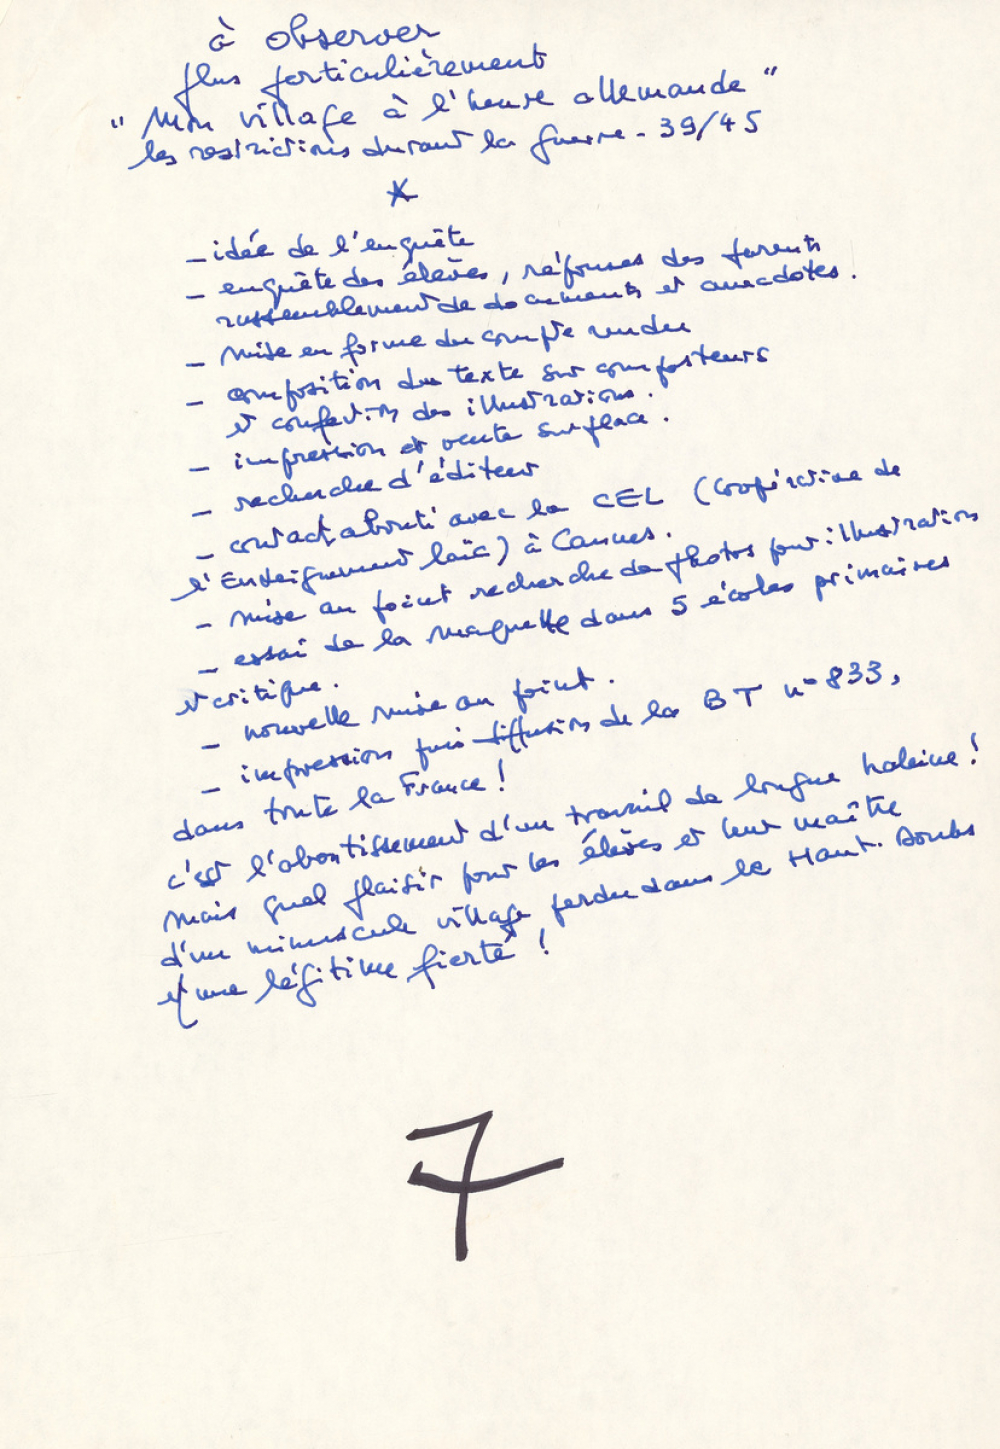 à observer
plus particulièrement
"Mon village à l'heure allemande"
les restrictions durant la guerre - 39/45
*
- idée de l'enquête
- enquête des élèves, réponses des parents
rassemblement de documents et anecdotes.
- mise en forme du compte rendu
- composition du texte sur composteurs
et confection des illustrations.
- impression et vente sur place.
- recherche d'éditeur
- contact abouti avec la CEL (Coopérative de
l'Enseignement laïc) à Cannes.
- mise au point recherche de photos pour illustration
- essai de la maquette dans 5 écoles primaires
et critique.
- nouvelle mise au point.
- impression puis diffusion de la BT n° 833,
dans toute la France !
c'est l'aboutissement d'un travail de longue haleine !
mais quel plaisir pour les élèves et leur maître
d'un minuscule village perdu dans le Haut-Doubs
et une légitime fierté !
7